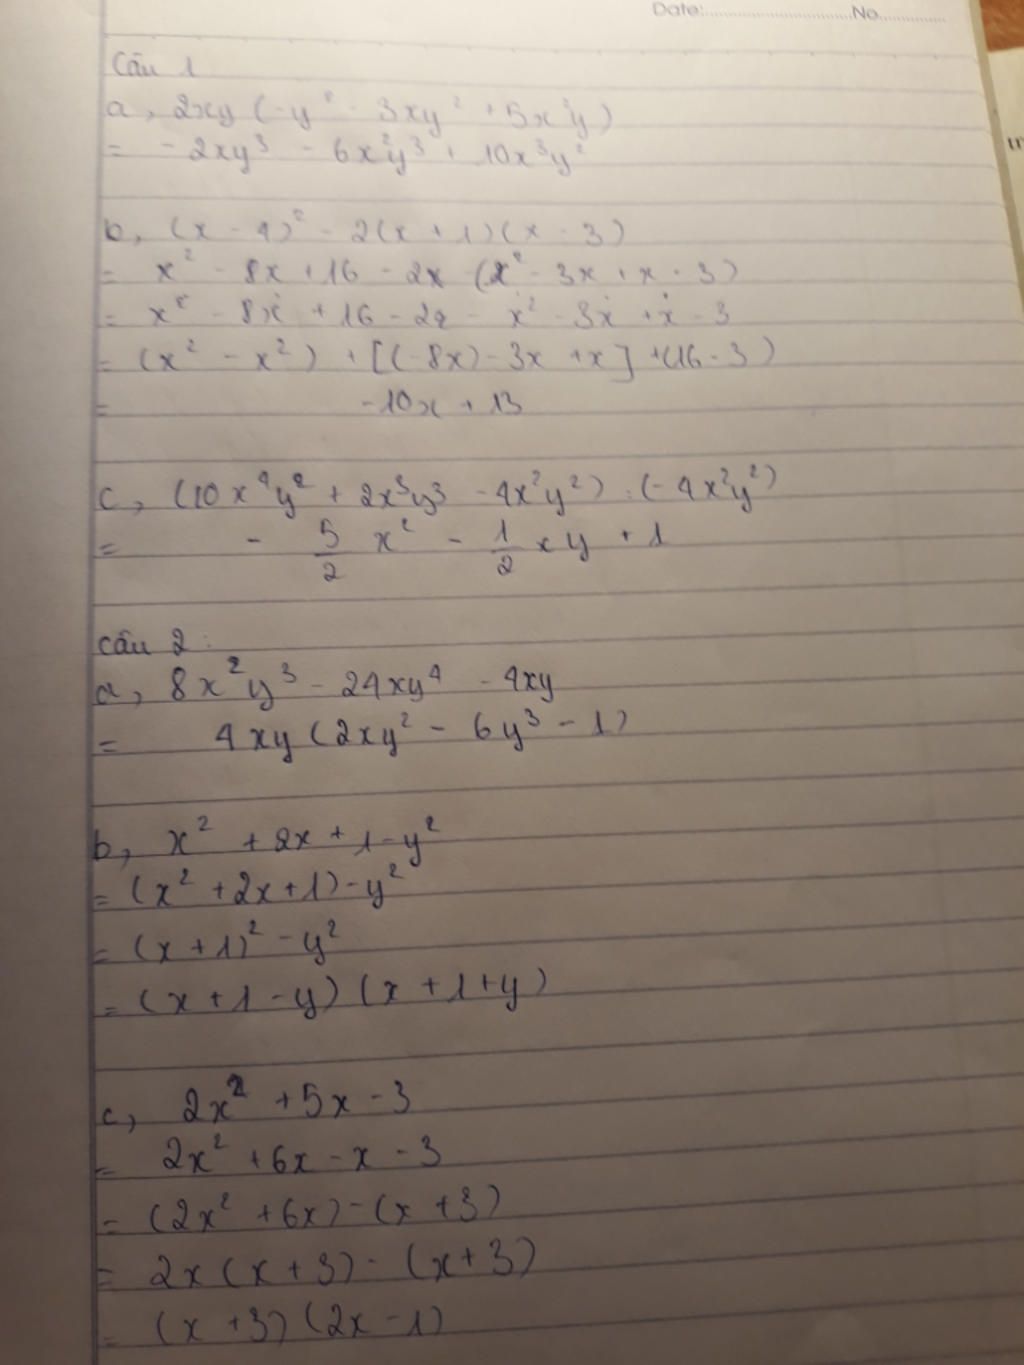 Date:..............................No..............
Câu 1
a, 2xy (-y² - 3xy² + 5x²y)
= -2xy³ - 6x²y³ + 10x³y²
b, (x - 4)² - 2(x + 1)(x - 3)
= x² - 8x + 16 - 2x - (x² - 3x + x - 3)
= x² - 8x + 16 - 2x - x² - 3x + x - 3
= (x² - x²) + [(-8x) - 3x + x] + (16 - 3)
= -10x + 13
c, (10x⁴y² + 2x³y³ - 4x²y²) : (-4x²y²)
= - 5/2 x² - 1/2 xy + 1
câu 2 :
a, 8x²y³ - 24xy⁴ - 4xy
= 4xy (2xy² - 6y³ - 1)
b, x² + 2x + 1 - y²
= (x² + 2x + 1) - y²
= (x + 1)² - y²
= (x + 1 - y) (x + 1 + y)
c, 2x² + 5x - 3
= 2x² + 6x - x - 3
= (2x² + 6x) - (x + 3)
= 2x (x + 3) - (x + 3)
= (x + 3) (2x - 1)